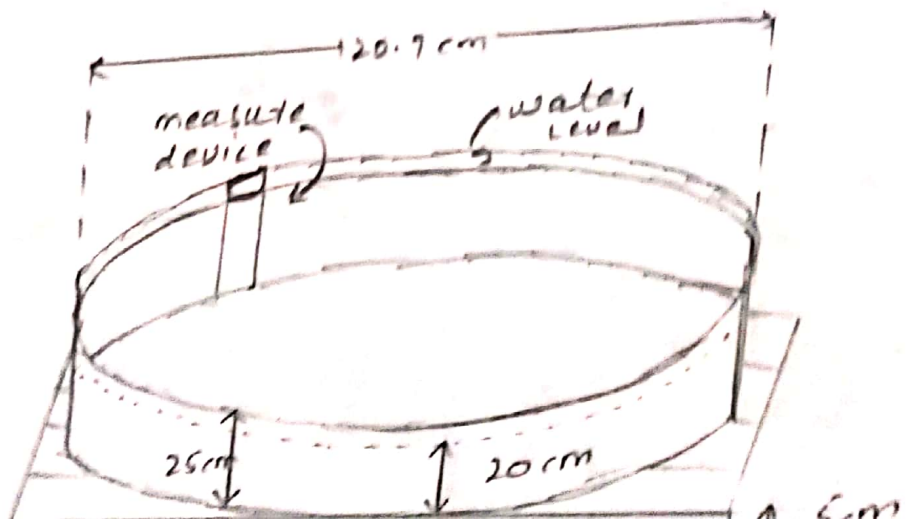 120.7 cm
measure
device
water
level
25cm
20cm
5cm